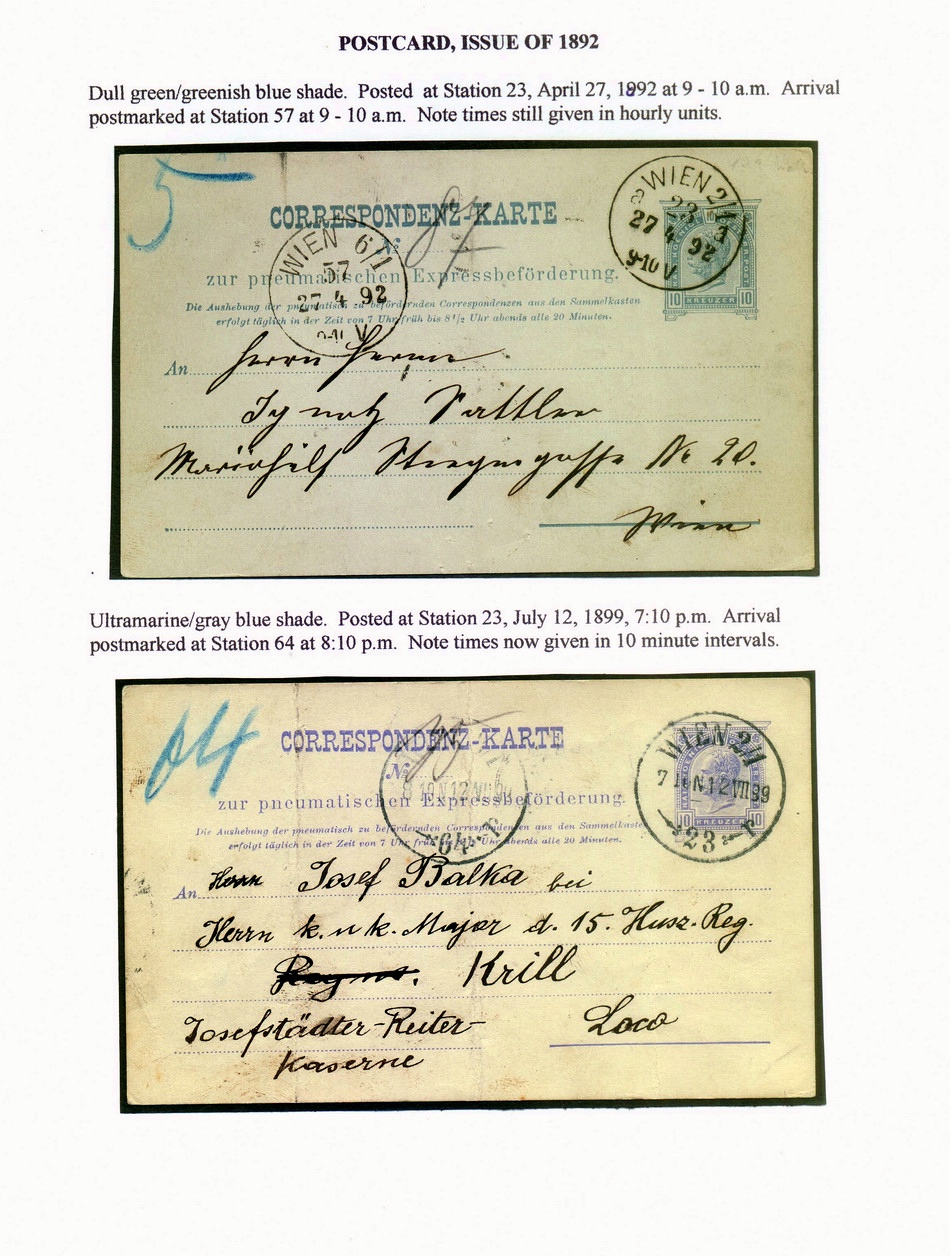 POSTCARD, ISSUE OF 1892
Dull green/greenish blue shade. Posted at Station 23, April 27, 1892 at 9 - 10 a.m. Arrival
postmarked at Station 57 at 9 - 10 a.m. Note times still given in hourly units.
5
CORRESPONDENZ-KARTE
No
zur pneumatischen Expressbeförderung.
Die Aushebung der pneumatisch zu befördernden Correspondenzen aus den Sammelkasten
erfolgt täglich in der Zeit von 7 Uhr früh bis 8½ Uhr abends alle 20 Minuten.
WIEN 2/1
23
27 4 92
9-10 V
10 KREUZER 10
WIEN 6/1
57
27 4 92
An Herrn Herrn
Ignatz Sattler
Mariahilf Stiegengasse No 20.
Wien
Ultramarine/gray blue shade. Posted at Station 23, July 12, 1899, 7:10 p.m. Arrival
postmarked at Station 64 at 8:10 p.m. Note times now given in 10 minute intervals.
64
CORRESPONDENZ-KARTE
No
zur pneumatischen Expressbeförderung.
Die Aushebung der pneumatisch zu befördernden Correspondenzen aus den Sammelkasten
erfolgt täglich in der Zeit von 7 Uhr früh bis 8½ Uhr abends alle 20 Minuten.
WIEN 2/1
7 10 N 12 VII 99
23
KREUZER 10
64
An Herrn Josef Balka bei
Herrn k. u k. Major d. 15. Husz. Reg.
Krill
Josefstädter-Reiter-
Kaserne
Loco